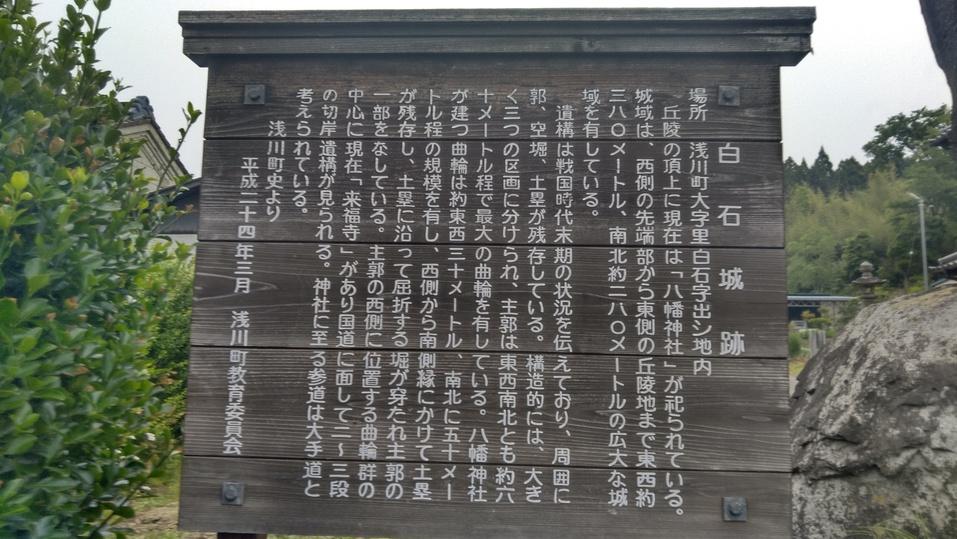 白石城跡
場所 浅川町大字里白石字出シ地内
丘陵の頂上に現在は「八幡神社」が祀られている。
城域は、西側の先端部から東側の丘陵地まで東西約
三八〇メートル、南北約二八〇メートルの広大な城
域を有している。
遺構は戦国時代末期の状況を伝えており、周囲に
郭、空堀、土塁が残存している。構造的には、大き
く三つの区画に分けられ、主郭は東西南北とも約六
十メートル程で最大の曲輪を有している。八幡神社
が建つ曲輪は約東西三十メートル、南北に五十メー
トル程の規模を有し、西側から南側縁にかけて土塁
が残存し、土塁に沿って屈折する堀が穿たれ主郭の
一部をなしている。主郭の西側に位置する曲輪群の
中心に現在「来福寺」があり国道に面して二〜三段
の切岸遺構が見られる。神社に至る参道は大手道と
考えられている。
浅川町史より
平成二十四年三月 浅川町教育委員会